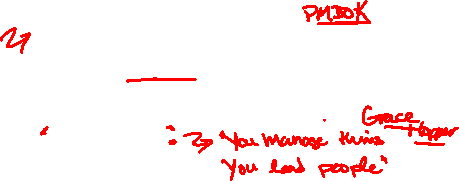 PMBOK
Grace
Hopper
"You manage
You lead people"